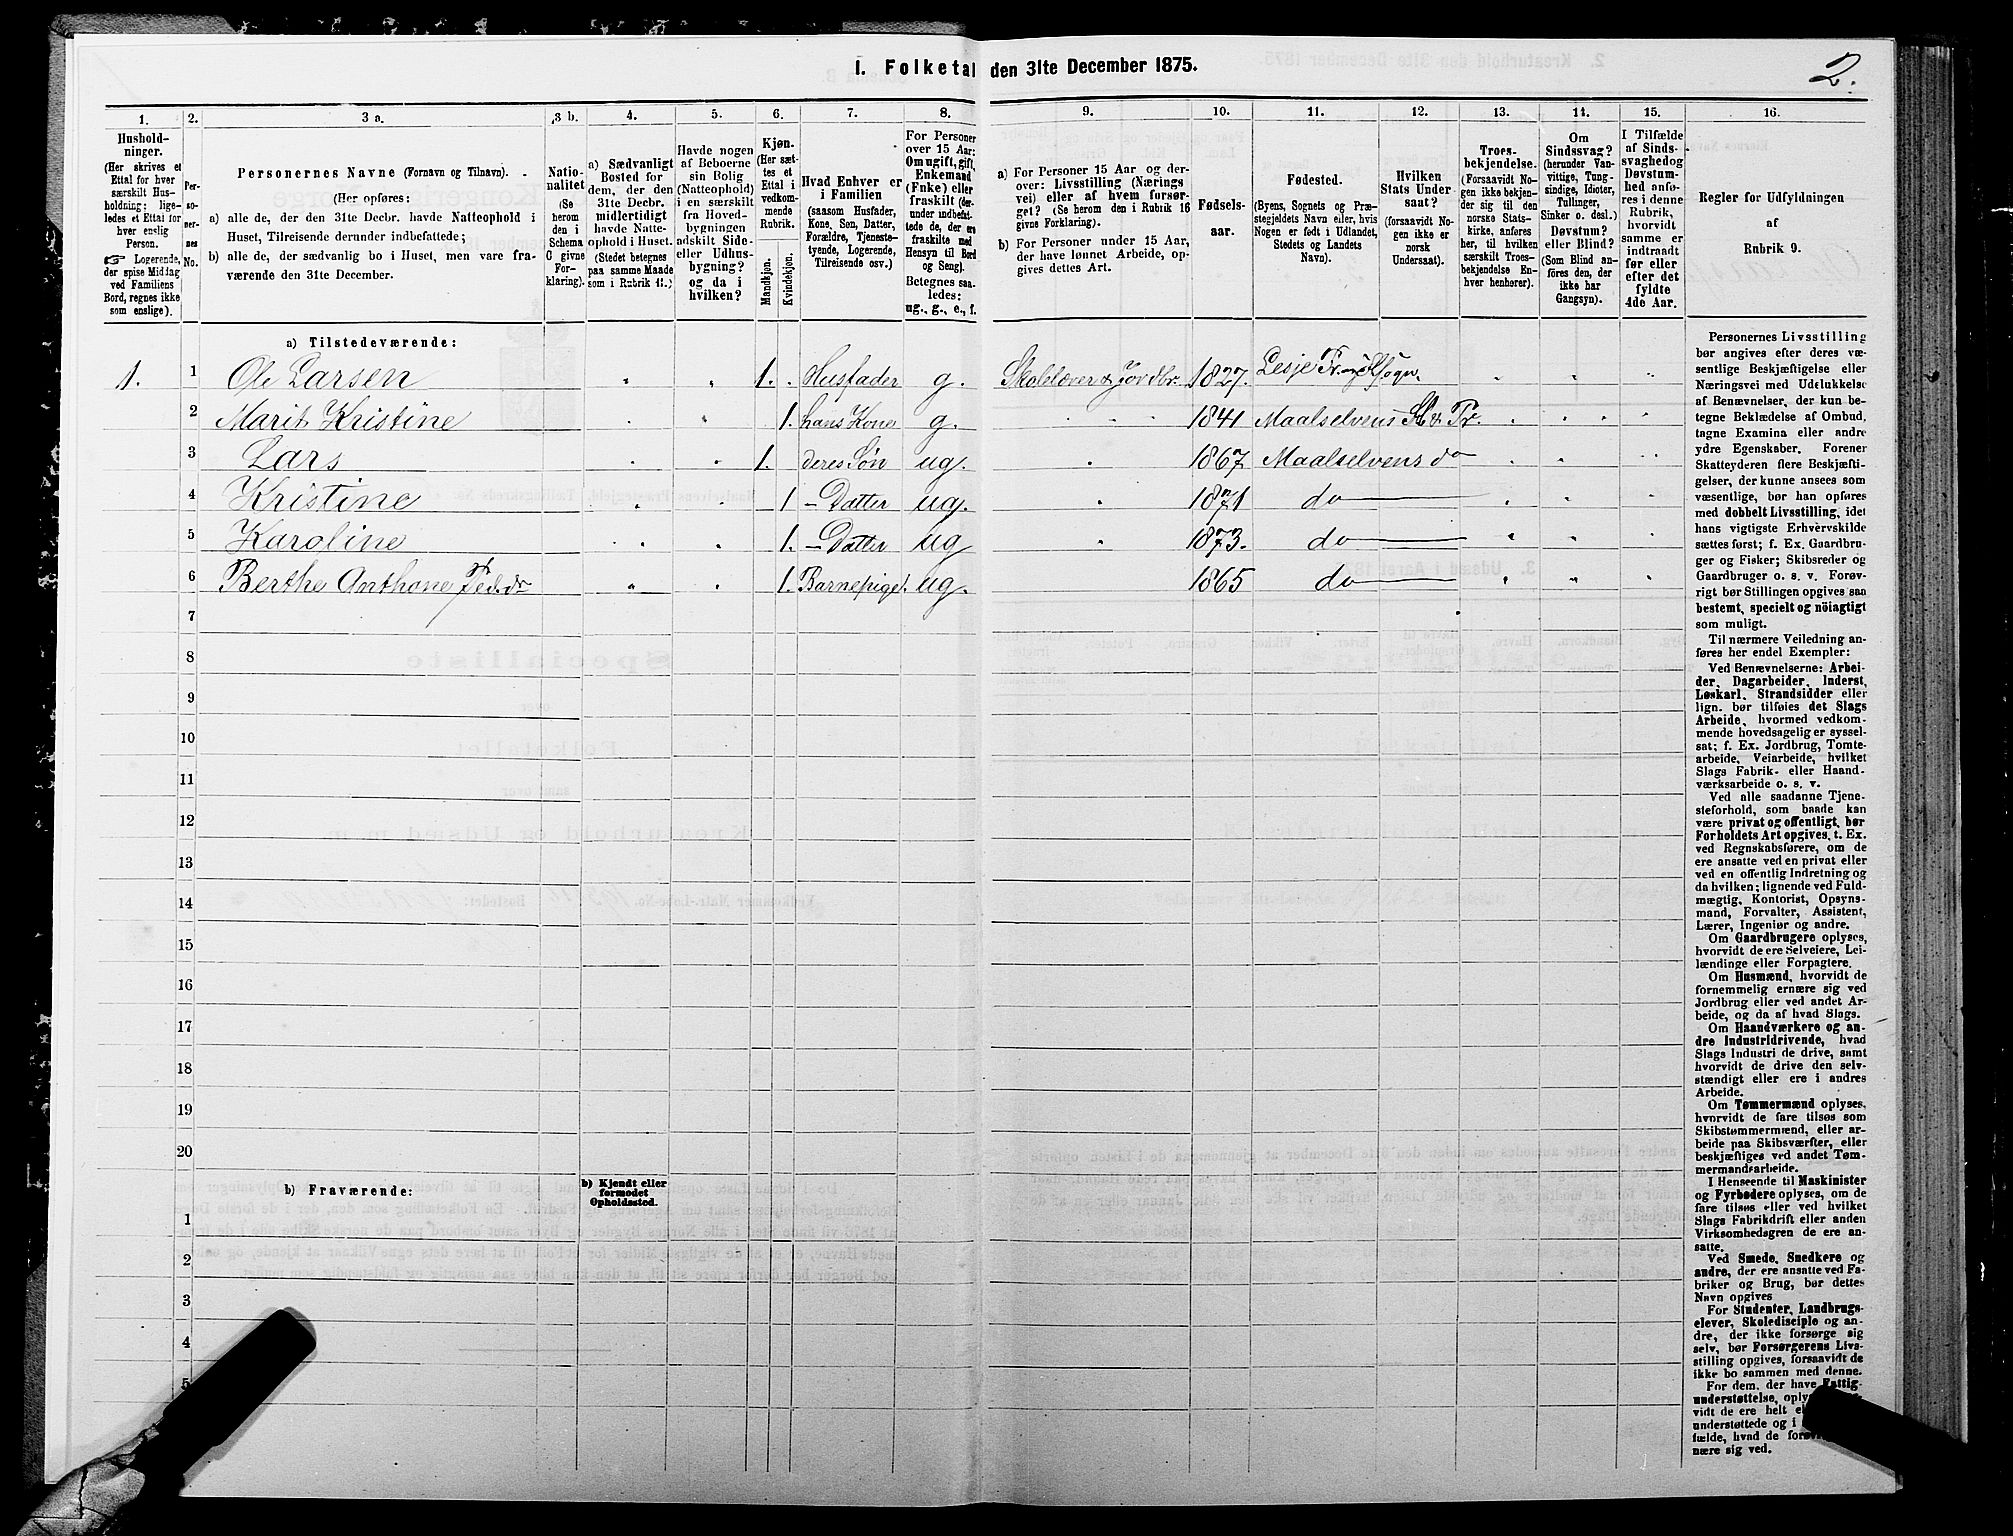 I. Folketal den 31te December 1875.
2.
1.
2.
3 a.
3 b.
4.
5.
6.
7.
8.
9.
10.
11.
12.
13.
14.
15.
16.
Hushold-
ninger.
(Her skrives et
Ettal for hver
særskilt Hus-
holdning; lige-
ledes et Ettal for
hver enslig
Person.
☞ Logerende,
der spise Middag
ved Familiens
Bord, regnes ikke
som enslige).
Per-
so-
ner-
nes
No.
Personernes Navne (Fornavn og Tilnavn).
(Her opføres:
a) alle de, der den 31te Decbr. havde Natteophold i
Huset, Tilreisende derunder indbefattede;
b) alle de, der sædvanlig bo i Huset, men vare fra-
værende den 31te December.
Natio-
nalitet
(Se
herom
den i
Schema
C givne
For-
klaring).
a) Sædvanligt
Bosted for
dem, der den
31te Decbr.
midlertidigt
havde Natte-
ophold i Huset.
(Stedet betegnes
paa samme Maade
som i Rubrik 11.)
Havde nogen
af Beboerne
sin Bolig
(Natteophold)
i en særskilt
fra Hoved-
bygningen
adskilt Side-
eller Udhus-
bygning?
og da i
hvilken?
Kjøn.
(Her sæt-
tes et
Ettal i
vedkom-
mende
Rubrik.
Mandkjøn.
Kvindekjøn.
Hvad Enhver er
i Familien
(saasom Husfader,
Kone, Søn, Datter,
Forældre, Tjeneste-
tyende, Logerende,
Tilreisende osv.)
For Personer
over 15 Aar:
Om ugift, gift,
Enkemand
(Enke) eller
fraskilt (der-
under indbefat-
tede de, der ere
fraskilte med
Hensyn til Bord
og Seng).
Betegnes saa-
ledes:
ug., g., e., f.
a) For Personer 15 Aar og der-
over: Livsstilling (Nærings
vei) eller af hvem forsør-
get? (Se herom den i Rubrik 16
givne Forklaring).
b) For Personer under 15 Aar,
der have lønnet Arbeide, op-
gives dettes Art.
Fødsels-
aar.
Fødested.
(Byens, Sognets og Præ-
stegjeldets Navn eller, hvis
Nogen er født i Udlandet,
Stedets og Landets
Navn).
Hvilken
Stats Under
saat?
(forsaavidt No-
gen ikke er
norsk
Undersaat).
Troes-
bekjendelse.
(Forsaavidt No-
gen ikke bekjen-
der sig til den
norske Stats-
kirke, anføres
her, til hvilken
særskilt Troes-
bekjendelse En-
hver henhører).
Om
Sindssvag?
(herunder Van-
vittige, Tung-
sindige, Idioter,
Tullinger,
Sinker o. desl.)
Døvstum?
eller Blind?
(Som Blind an-
føres den, der
ikke har
Gangsyn).
I Tilfælde
af Sinds-
svaghed og
Døvstum-
hed anfø-
res i denne
Rubrik,
hvorvidt
samme er
indtraadt
før eller
efter det
fyldte
4de Aar.
Regler for Udfyldningen
af
Rubrik 9.
a) Tilstedeværende:
1. 1 Ole Larsen 1. Husfader g. Skolelærer & Jordbr. 1827. Lesje Pr. og Sogn.
2 Marit Kristine 1. hans Kone g. 1841 Maalselvens S. & Pr.
3 Lars 1. deres Søn ug. 1867 Maalselvens do
4 Kristine 1 – Datter ug. 1871 do
5 Karoline 1. – Datter ug 1873. do
6 Berthe Anthone Ped.dr 1. Barnepige. ug. 1865 do
7
8
9
10
11
12
13
14
15
16
17
18
19
20
b) Fraværende:
b) Kjendt eller
formodet
Opholdssted.
1
2
3
4
5
Personernes Livsstilling
bør angives efter deres væ-
sentlige Beskjæftigelse eller
Næringsvei med Udelukkelse
af Benævnelser, der kun be-
tegne Beklædelse af Ombud,
tagne Examina eller andre
ydre Egenskaber. Forener
Skatteyderen flere Beskjæfti-
gelser, der kunne ansees som
væsentlige, bør han opføres
med dobbelt Livsstilling, idet
hans vigtigste Erhvervskilde
sættes først; f. Ex. Gaardbru-
ger og Fisker; Skibsreder og
Gaardbruger o. s. v. Forøv-
rigt bør Stillingen opgives saa
bestemt, specielt og nöiagtigt
som muligt.
Til nærmere Veiledning an-
føres her endel Exempler:
Ved Benævnelserne: Arbei-
der, Dagarbeider, Inderst,
Løskarl, Strandsidder eller
lign. bør tilføies det Slags
Arbeide, hvormed vedkom-
mende hovedsagelig er syssel-
sat; f. Ex. Jordbrug, Tomte-
arbeide, Veiarbeide, hvilket
Slags Fabrik- eller Haand-
værksarbeide o. s. v.
Ved alle saadanne Tjene-
steforhold, som baade kan
være privat og offentligt, bør
Forholdets Art opgives, t. Ex.
ved Regnskabsførere, om de
ere ansatte ved en privat eller
ved en offentlig Indretning og
da hvilken; lignende ved Fuld-
mægtig, Kontorist, Opsyns-
mand, Forvalter, Assistent,
Lærer, Ingeniør og andre.
Om Gaardbrugere oplyses,
hvorvidt de ere Selveiere, Lei-
lændinge eller Forpagtere.
Om Husmænd, hvorvidt de
fornemmelig ernære sig ved
Jordbrug eller ved andet Ar-
beide, og da af hvad Slags.
Om Haandværkere og an-
dre Industridrivende, hvad
Slags Industri de drive, samt
hvorvidt de drive den selv-
stændigt eller ere i andres
Arbeide.
Om Tømmermænd oplyses,
hvorvidt de fare tilsøs som
Skibstømmermænd, eller ar-
beide paa Skibsværfter, eller
beskjæftiges ved andet Tøm-
mermandsarbeide.
I Henseende til Maskinister
og Fyrbødere oplyses, om de
fare tilsøs eller ved hvilket
Slags Fabrikdrift eller anden
Virksomhedsgren de ere an-
satte.
Ved Smede, Snedkere og
andre, der ere ansatte ved Fa-
briker og Brug, bør dettes
Navn opgives
For Studenter, Landbrugs-
elever, Skoledisciple og an-
dre, der ikke forsørge sig
selv, bør Forsørgerens Livs-
stilling opgives, forsaavidt de
ikke bo sammen med denne.
For dem, der have Fattig-
understøttelse, oply
vidt de ere helt el
understøttede og i
fælde, hvad de
nære sig ved.